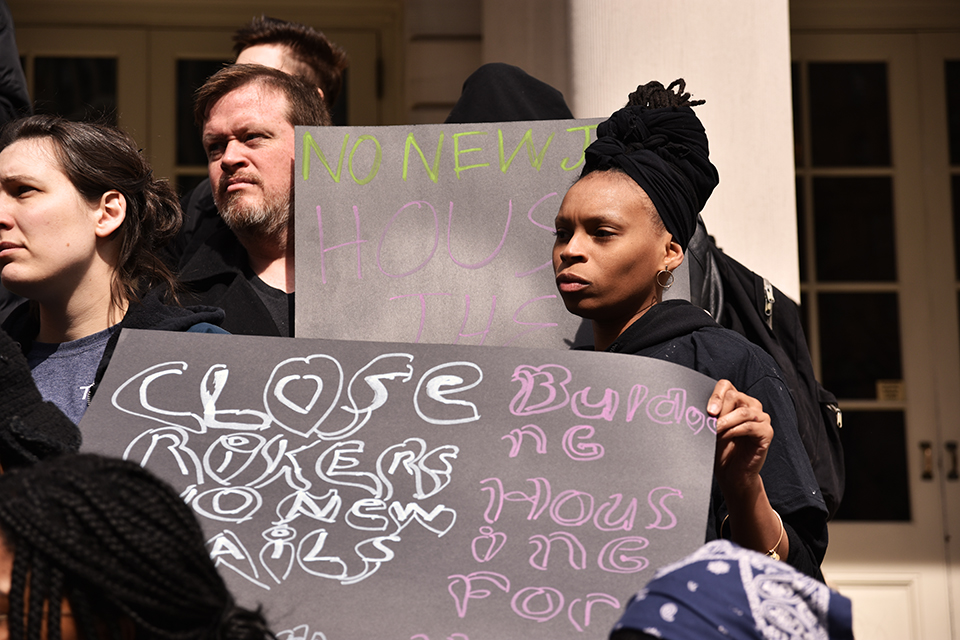 NO NEW J
HOUS
THE
CLOSE
RIKERS
NO New
JAiLS
Build,
NG
Hous
iNG
For